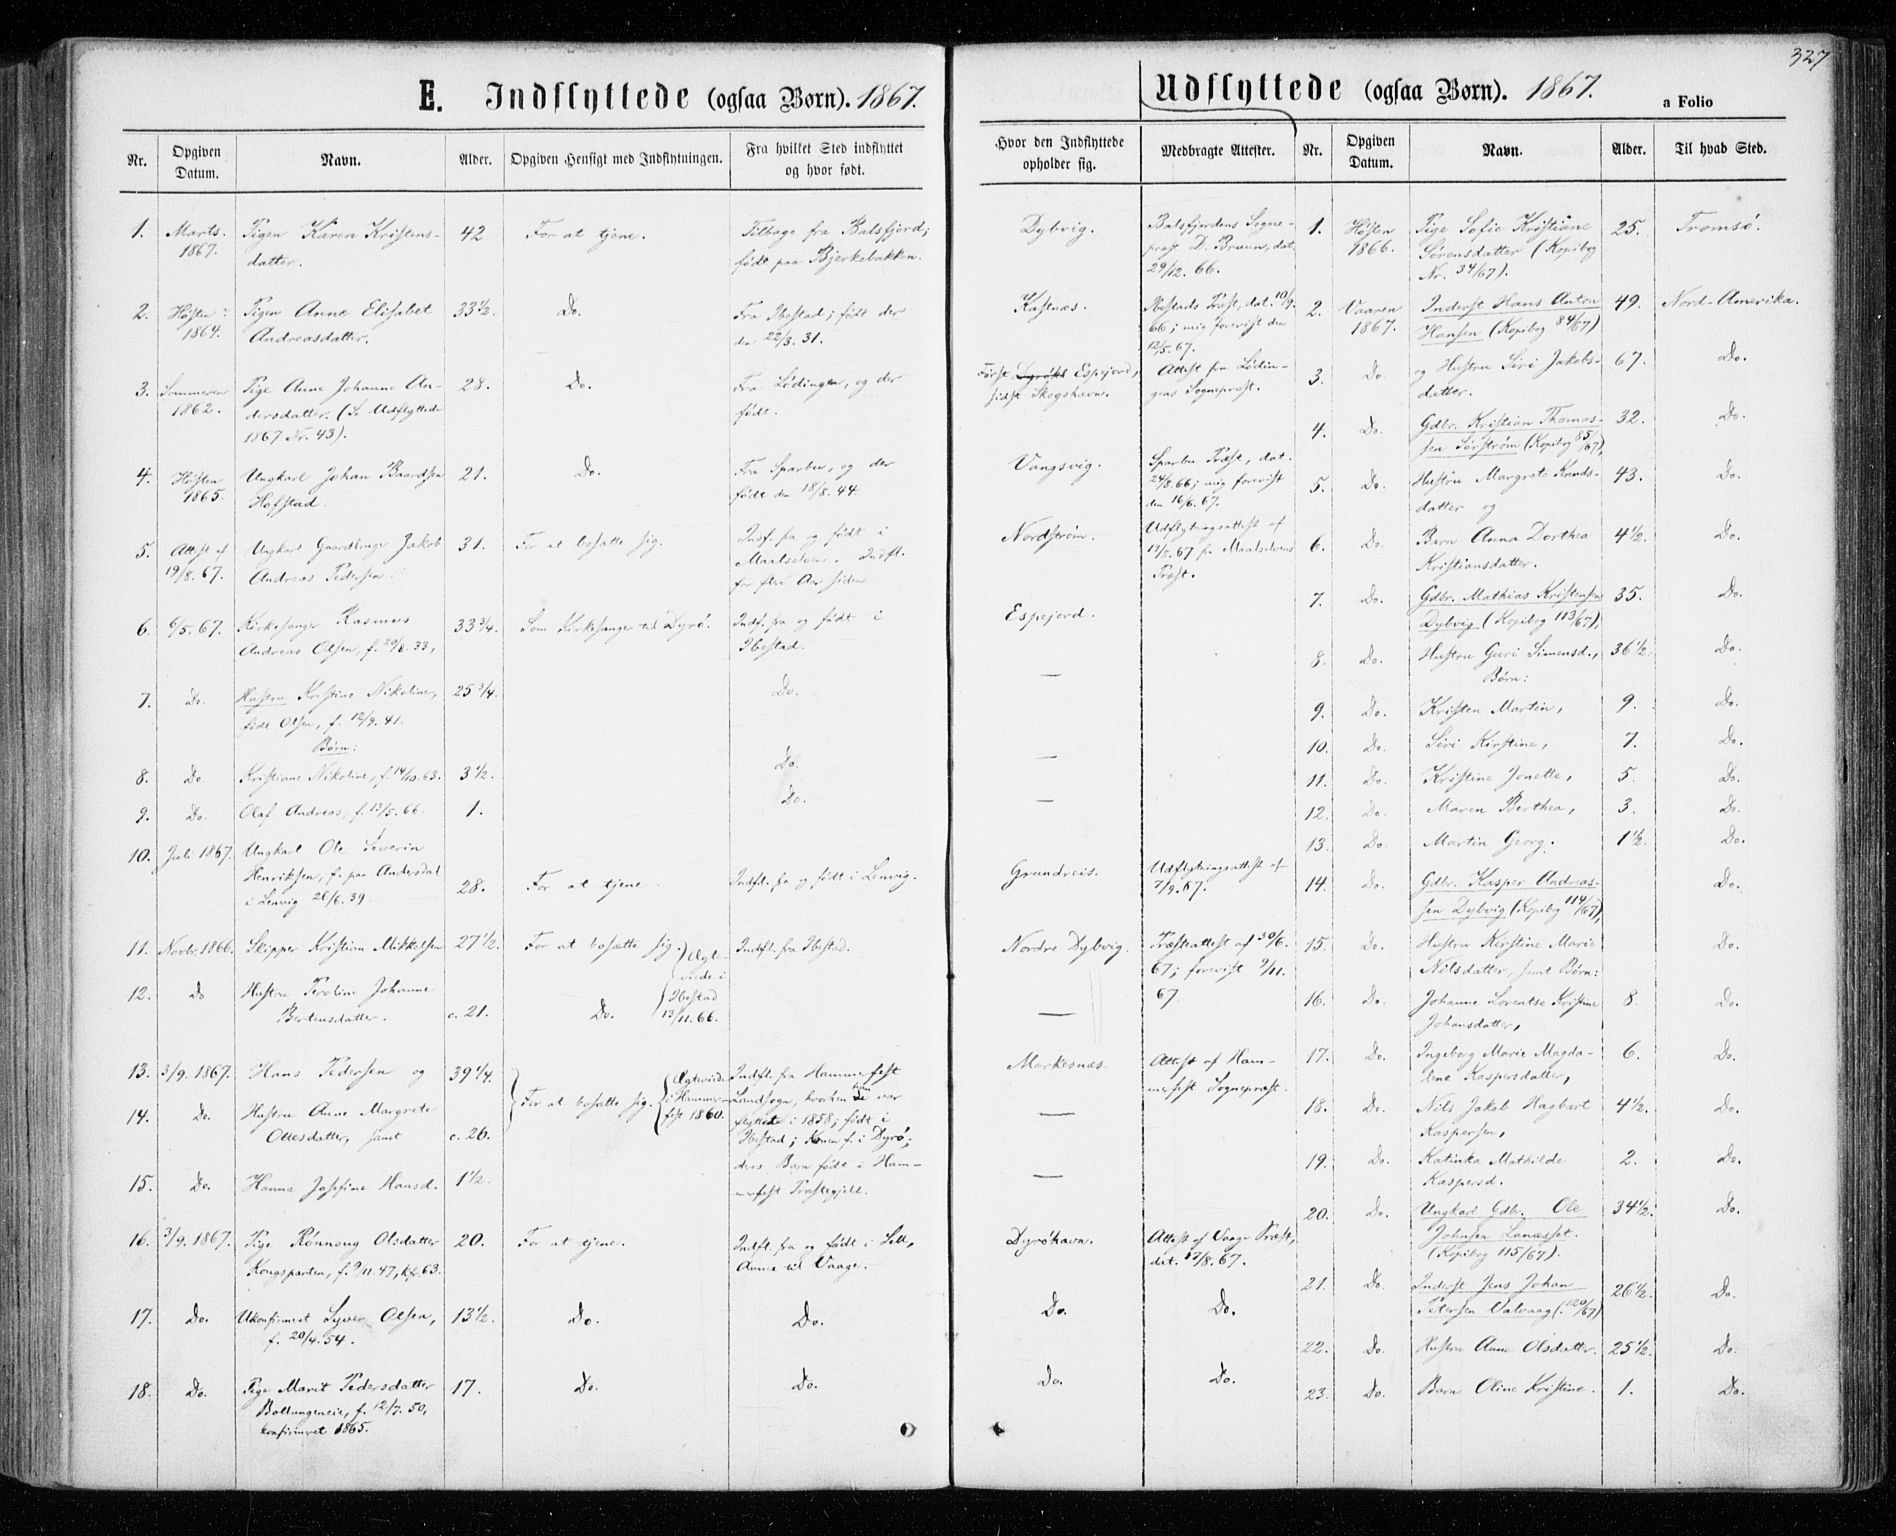 327
E. Indflyttede (ogsaa Børn). 1867.
Nr.
Opgiven Datum.
Navn.
Alder.
Opgiven Hensigt med Indflytningen.
Fra hvilket Sted indflyttet
og hvor født.
Hvor den Indflyttede
opholder sig.
Medbragte Attester.
1. Marts. 1867. Pigen Karen Kristens-
datter. 42 For at tjene. Tilbage fra Balsfjord;
født paa Bjerkebakken. Dybvig. Balsfjordens Sogne-
prest D. Bruun, dat.
29/12. 66.
2. Høsten 1864. Pigen Anne Elisabet
Andreasdatter. 33 1/2. Do. Fra Ibestad; født der
den 22/3. 31. Kastnæs. Ibestads Præst, dat. 10/9.
66; mig forevist den
12/5. 67.
3. Sommeren 1862. Pige Anne Johanne An-
dersdatter. (Se Udflyttede
1867 Nr. 43). 28. Do. Fra Lødingen, og der
født. Først Dyrøkl Espejord,
sidst Skogshavn. Attest fra Lødin-
gens Sogneprest.
4. Høsten 1865. Ungkarl Johan Baardsen
Hofstad. 21. Do. Fra Sparbu, og der
født den 18/8. 44. Vangsvig. Sparbu Præst, dat.
24/8. 66; mig forevist
den 16/6. 67.
5. Attest af
19/8. 67. Ungkarl Gaardbruger Jakob
Andreas Pedersen. 31. For at bosætte sig. Indf. fra og født i
Maalselven. Indfl.
for flere Aar siden Nordstrøm. Udflytningsattest af
13/8. 67 fra Maalselvens
Præst.
6. 6/5. 67. Kirkesanger Rasmus
Andreas Olsen, f. 29/8. 33, 33 3/4. Som Kirkesanger til Dyrø. Indf. fra og født i
Ibestad. Espejord.
7. Do. Hustru Kristine Nikoline,
født Olsen, f. 12/9. 41. 25 3/4. Do. —
Børn:
8. Do. Kristiane Nikoline, f. 14/10. 63. 3 1/2. Do. —
9. Do. Olaf Andreas, f. 13/5. 66. 1. Do. —
10. Juli 1867. Ungkarl Ole Severin
Henriksen, f. paa Andersdal
i Lenvig 26/6. 39. 28. For at tjene. Indfl. fra og født i Lenvig. Grundreis. Udflytningsattest af
7/9. 67.
11. Novbr. 1866. Skipper Kristian Mikkelsen 27 1/2. For at bosætte sig. Indfl. fra Ibestad. Nordre Dybvig. Præsteattest af 30/6.
67; forevist 9/11.
67.
12. Do Hustru Peroline Johanne
Bertensdatter. c. 21. Do. Ægte-
viede i
Ibestad
13/11. 66. —
13. 3/9. 1867. Hans Pedersen og 39 1/4. For at bosætte sig. Ægteviede
i Hammer-
fest 1860. Indfl. fra Hammerfest
Landsogn, hvorhen han var
flyttet i 1858; født i
Ibestad; Konen f. i Dyrø;
dres Barn født i Ham-
merfest Præstegjeld. Markesnæs. Attest af Ham-
merfest Sogneprest.
14. Do. Hustru Anne Margrete
Ottesdatter, samt c. 26. —
15. Do. Hanna Josefine Hansd. 1 1/2. —
16. 3/9. 1867. Pige Rønnoug Olsdatter
Kongsparten, f. 9/11. 47, kf. 63. 20. For at tjene. Indfl. fra og født i Sell,
Annex til Vaage. Dyrøhavn. Attest af Vaage Præst,
dat. 17/8. 67.
17. Do. Ukonfirmeret Syver Olsen,
f. 20/4. 54. 13 1/2. Do. Do. Do. Do.
18. Do. Pige Marit Pedersdatter
Bollungeneie, f. 12/7. 50,
konfirmeret 1865. 17. Do. Do. Do. Do.
Udflyttede (ogsaa Børn). 1867.
a Folio
Nr.
Opgiven Datum.
Navn.
Alder.
Til hvad Sted.
1. Høsten 1866. Pige Sofie Kristiane
Sørensdatter (Kopibog
Nr. 34/67). 25. Tromsø.
2. Vaaren 1867. Inderst Hans Anton
Hansen (Kopibog 84/67) 49. Nord-Amerika.
3. Do. og Hustru Siri Jakobs-
datter. 67. Do.
4. Do. Gdbr. Kristian Thomas-
sen Sørstrøm (Kopibog 85/67), 32. Do.
5. Do. Hustru Margrete Knuds-
datter og 43. Do.
6. Do. Barn Anna Dorthea
Kristiansdatter. 4 1/2. Do.
7. Do. Gdbr. Mathias Kristensen
Dybvig (Kopibog 113/67), 35. Do.
8. Do. Hustru Guri Simensd., 36 1/2. Do.
Børn:
9. Do. Kristen Martin, 9. Do.
10. Do. Siri Kirstine, 7. Do.
11. Do. Kristine Jonette, 5. Do.
12. Do. Maren Berthea, 3. Do.
13. Do. Martin Georg. 1 1/2. Do.
14. Do. Gdbr. Kasper Andreas-
sen Dybvig (Kopibog 114/67), Do.
15. Do. Hustru Kirstine Marie
Nilsdatter, samt Børn: Do.
16. Do. Johanne Lorentse Kristine
Johansdatter, 8. Do.
17. Do. Ingeborg Marie Magda-
lene Kaspersdatter, 6. Do.
18. Do. Nils Jakob Hagbart
Kaspersen, 4 1/2. Do.
19. Do. Katinka Mathilde
Kaspersd. 2. Do.
20. Do. Ungkarl Gdbr. Ole
Johnsen Lanæsset.
(Kopibog 115/67). 34 1/2. Do.
21. Do. Inderst Jens Johan
Petersen Valvaag (120/67) 26 1/2. Do.
22. Do. Hustru Anne Olsdatter. 25 1/2. Do.
23. Do. Barn Oline Kristine. 1. Do.